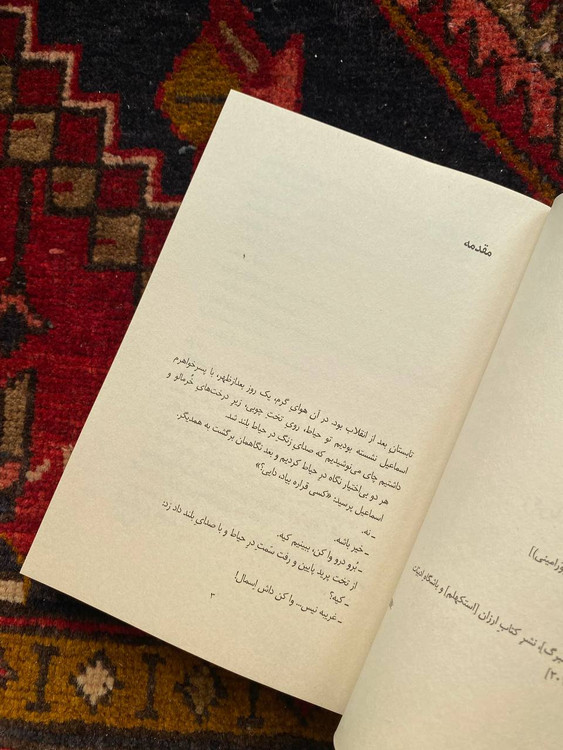 مقدمه
۱
تابستان بعد از انقلاب بود. در آن هوای گرم، یک روز بعدازظهر، با پسرخواهرم
اسماعیل نشسته بودیم تو حیاط، روی تخت چوبی، زیر درخت‌های خُرمالو و
داشتیم چای می‌نوشیدیم که صدای زنگ در حیاط بلند شد.
هر دو بی‌اختیار نگاه در حیاط کردیم و بعد نگاهمان برگشت به همدیگر.
اسماعیل پرسید: «کسی قراره بیاد، دایی؟»
ـ نه.
ـ خیر باشه.
ـ بُرو درو وا کن، ببینیم کیه.
از تخت پرید پایین و رفت سمت در حیاط و با صدای بلند داد زد:
ـ کیه؟
ـ غریبه نیس... وا کن داش اِسمال!
۳
نشر کتاب ارزان [استکهلم] و باشگاه ادبیات